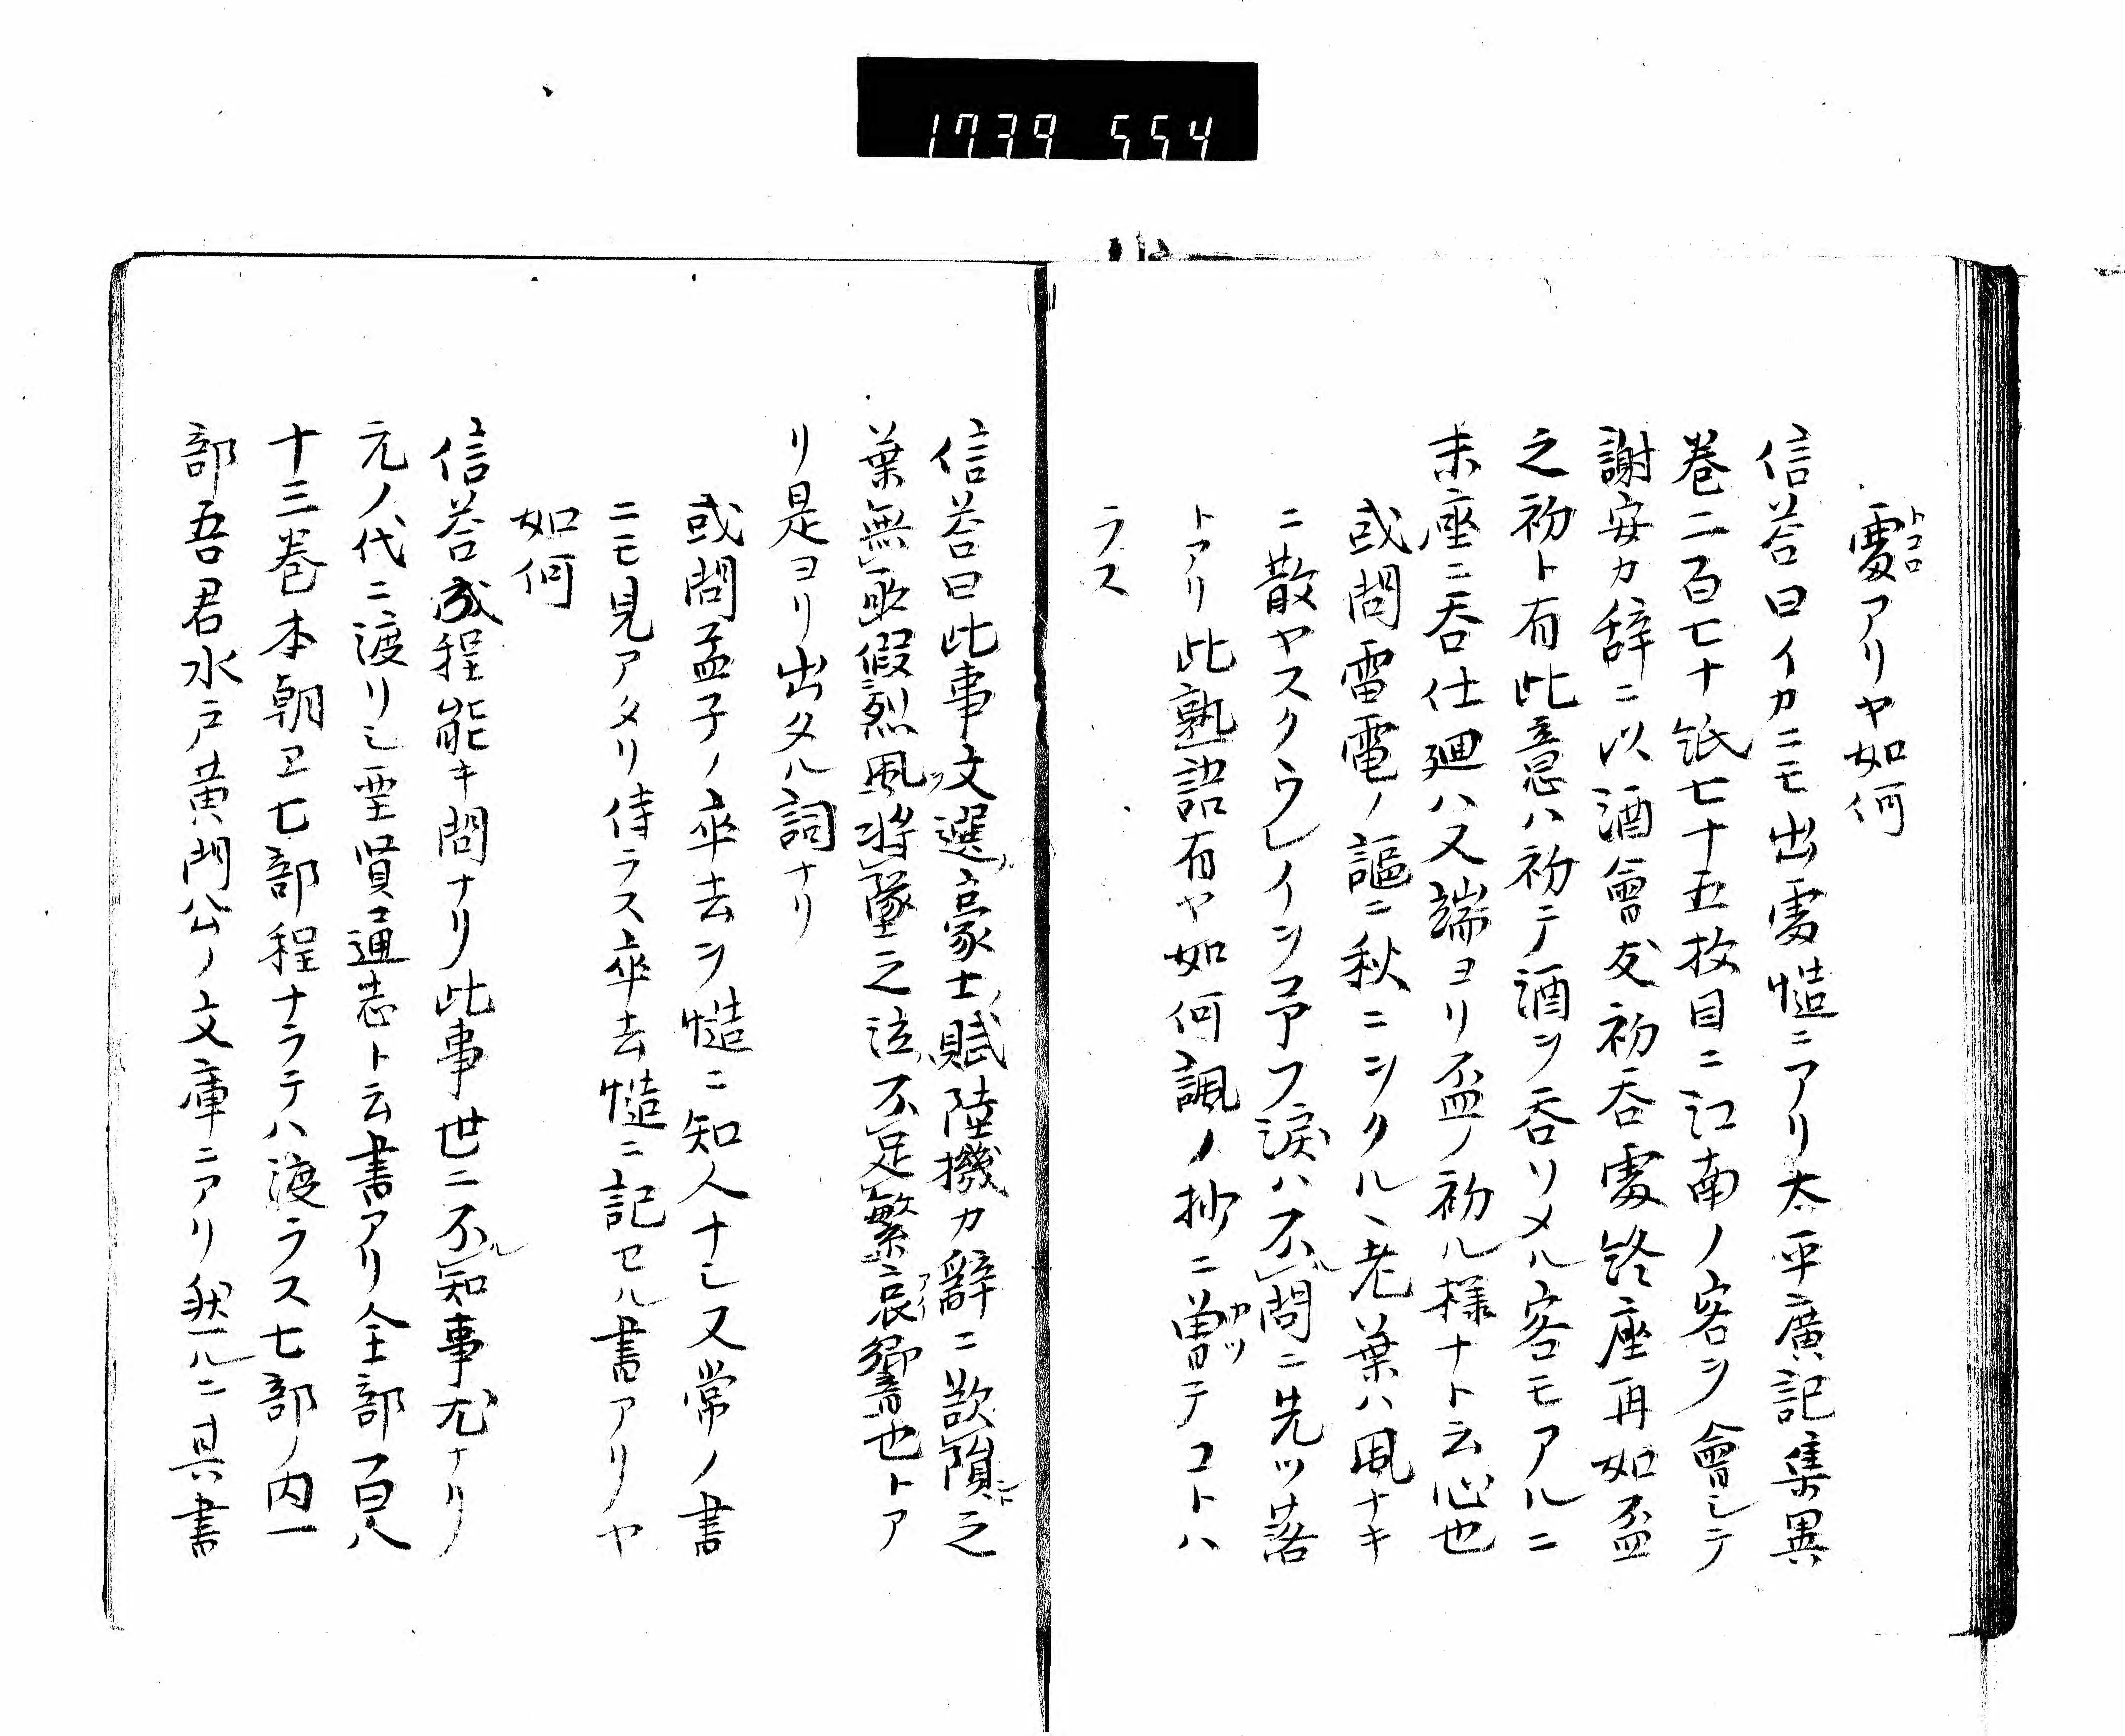 1739 554
處アリヤ如何
トコロ
信答曰イカニモ出處慥ニアリ太平廣記集異
巻二百七十紙七十五枚目ニ江南ノ客ヲ會シテ
謝安カ辞ニ以酒會友初呑處終座再如盃
之初ト有此意ハ初テ酒ヲ呑ソメル客モアルニ
末座ニ呑仕廻ハ又端ヨリ盃ノ初ル様ナト云心也
或問雷電ノ謳ニ秋ニヲクルヽ老葉ハ風ナキ
ニ散ヤスクウレイヲ弔フ涙ハ不問ニ先ツ落
トアリ此熟語有ヤ如何諷ノ抄ニ曽テコトハ
カツ
ラス
信答曰此事文選豪士賦陸機カ辭ニ欲隕之
葉無取假烈風將墜之泣不足繁哀響也トア
リ是ヨリ出タル詞ナリ
或問孟子ノ卒去ヲ慥ニ知人ナシ又常ノ書
ニモ見アタリ侍ラス卒去慥ニ記セル書アリヤ
如何
信答成程能キ問ナリ此事世ニ不知事尤ナリ
元ノ代ニ渡リシ聖賢通志ト云書アリ全部百八
十三巻本朝ヱ七部程ナラテハ渡ラス七部ノ内一
部吾君水戸黄門公ノ文庫ニアリ然ルニ其書